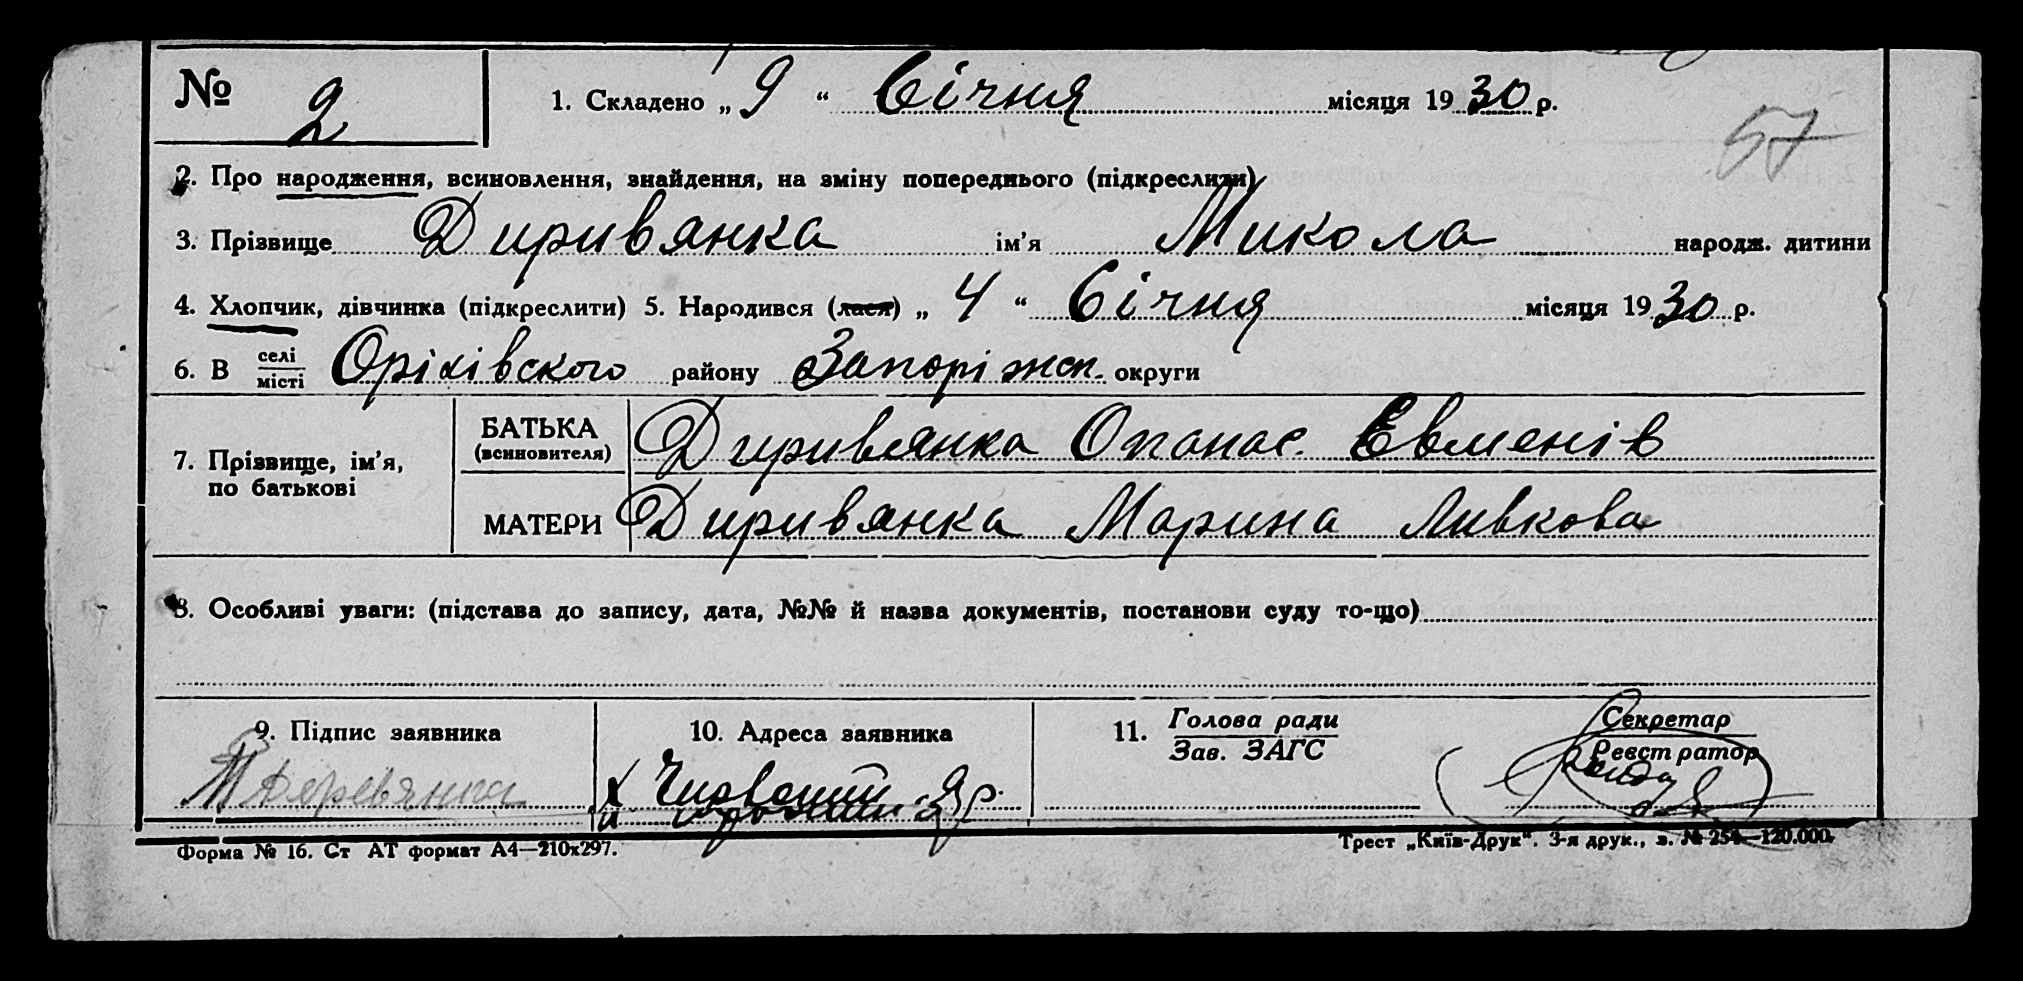 № 2 1. Складено „ 9 “ Січня місяця 1930 р.
57
2. Про народження, всиновлення, знайдення, на зміну попереднього (підкреслити)
3. Прізвище Диривянка ім’я Микола народж. дитини
4. Хлопчик, дівчинка (підкреслити) 5. Народився (лася) „ 4 “ Січня місяця 1930 р.
6. В селі місті Оріхівского району Запоріжск. округи
7. Прізвище, ім’я, по батькові
БАТЬКА (всиновителя) Диривлянка Опанас. Евменів
МАТЕРИ Диривянка Марина Ливкова
8. Особливі уваги: (підстава до запису, дата, №№ й назва документів, постанови суду то-що)
9. Підпис заявника 10. Адреса заявника 11. Голова ради Секретар
Зав. ЗАГС Реєстратор
Деревянка х
Форма № 16. Ст АТ формат А4—210x297. Трест „Київ-Друк“. 3-я друк., з. № 254—120.000.